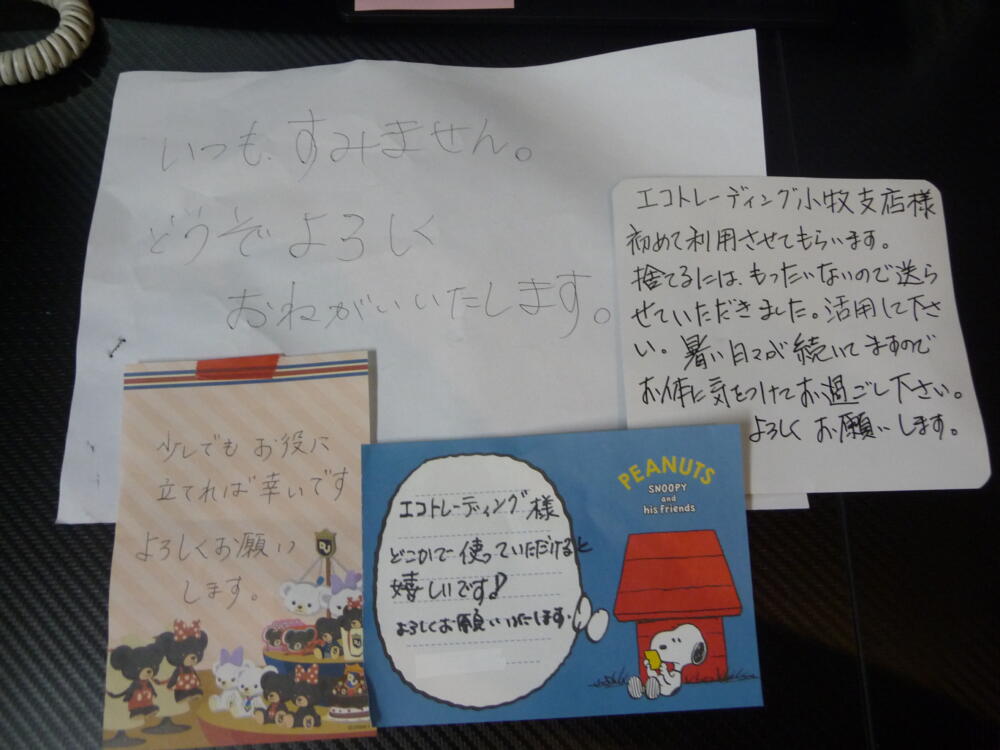 いつも、すみません。
どうぞよろしく
おねがいいたします。
エコトレーディング小牧支店様
初めて利用させてもらいます。
捨てるには、もったいないので送ら
せていただきました。活用して下さ
い。暑い日々が続いてますので
お体に気をつけてお過ごし下さい。
よろしくお願いします。
少しでもお役に
立てれば幸いです
よろしくお願い
します。
エコトレーディング様
どこかで使っていただけると
嬉しいです!
よろしくお願いいたします。
PEANUTS
SNOOPY
and
his friends